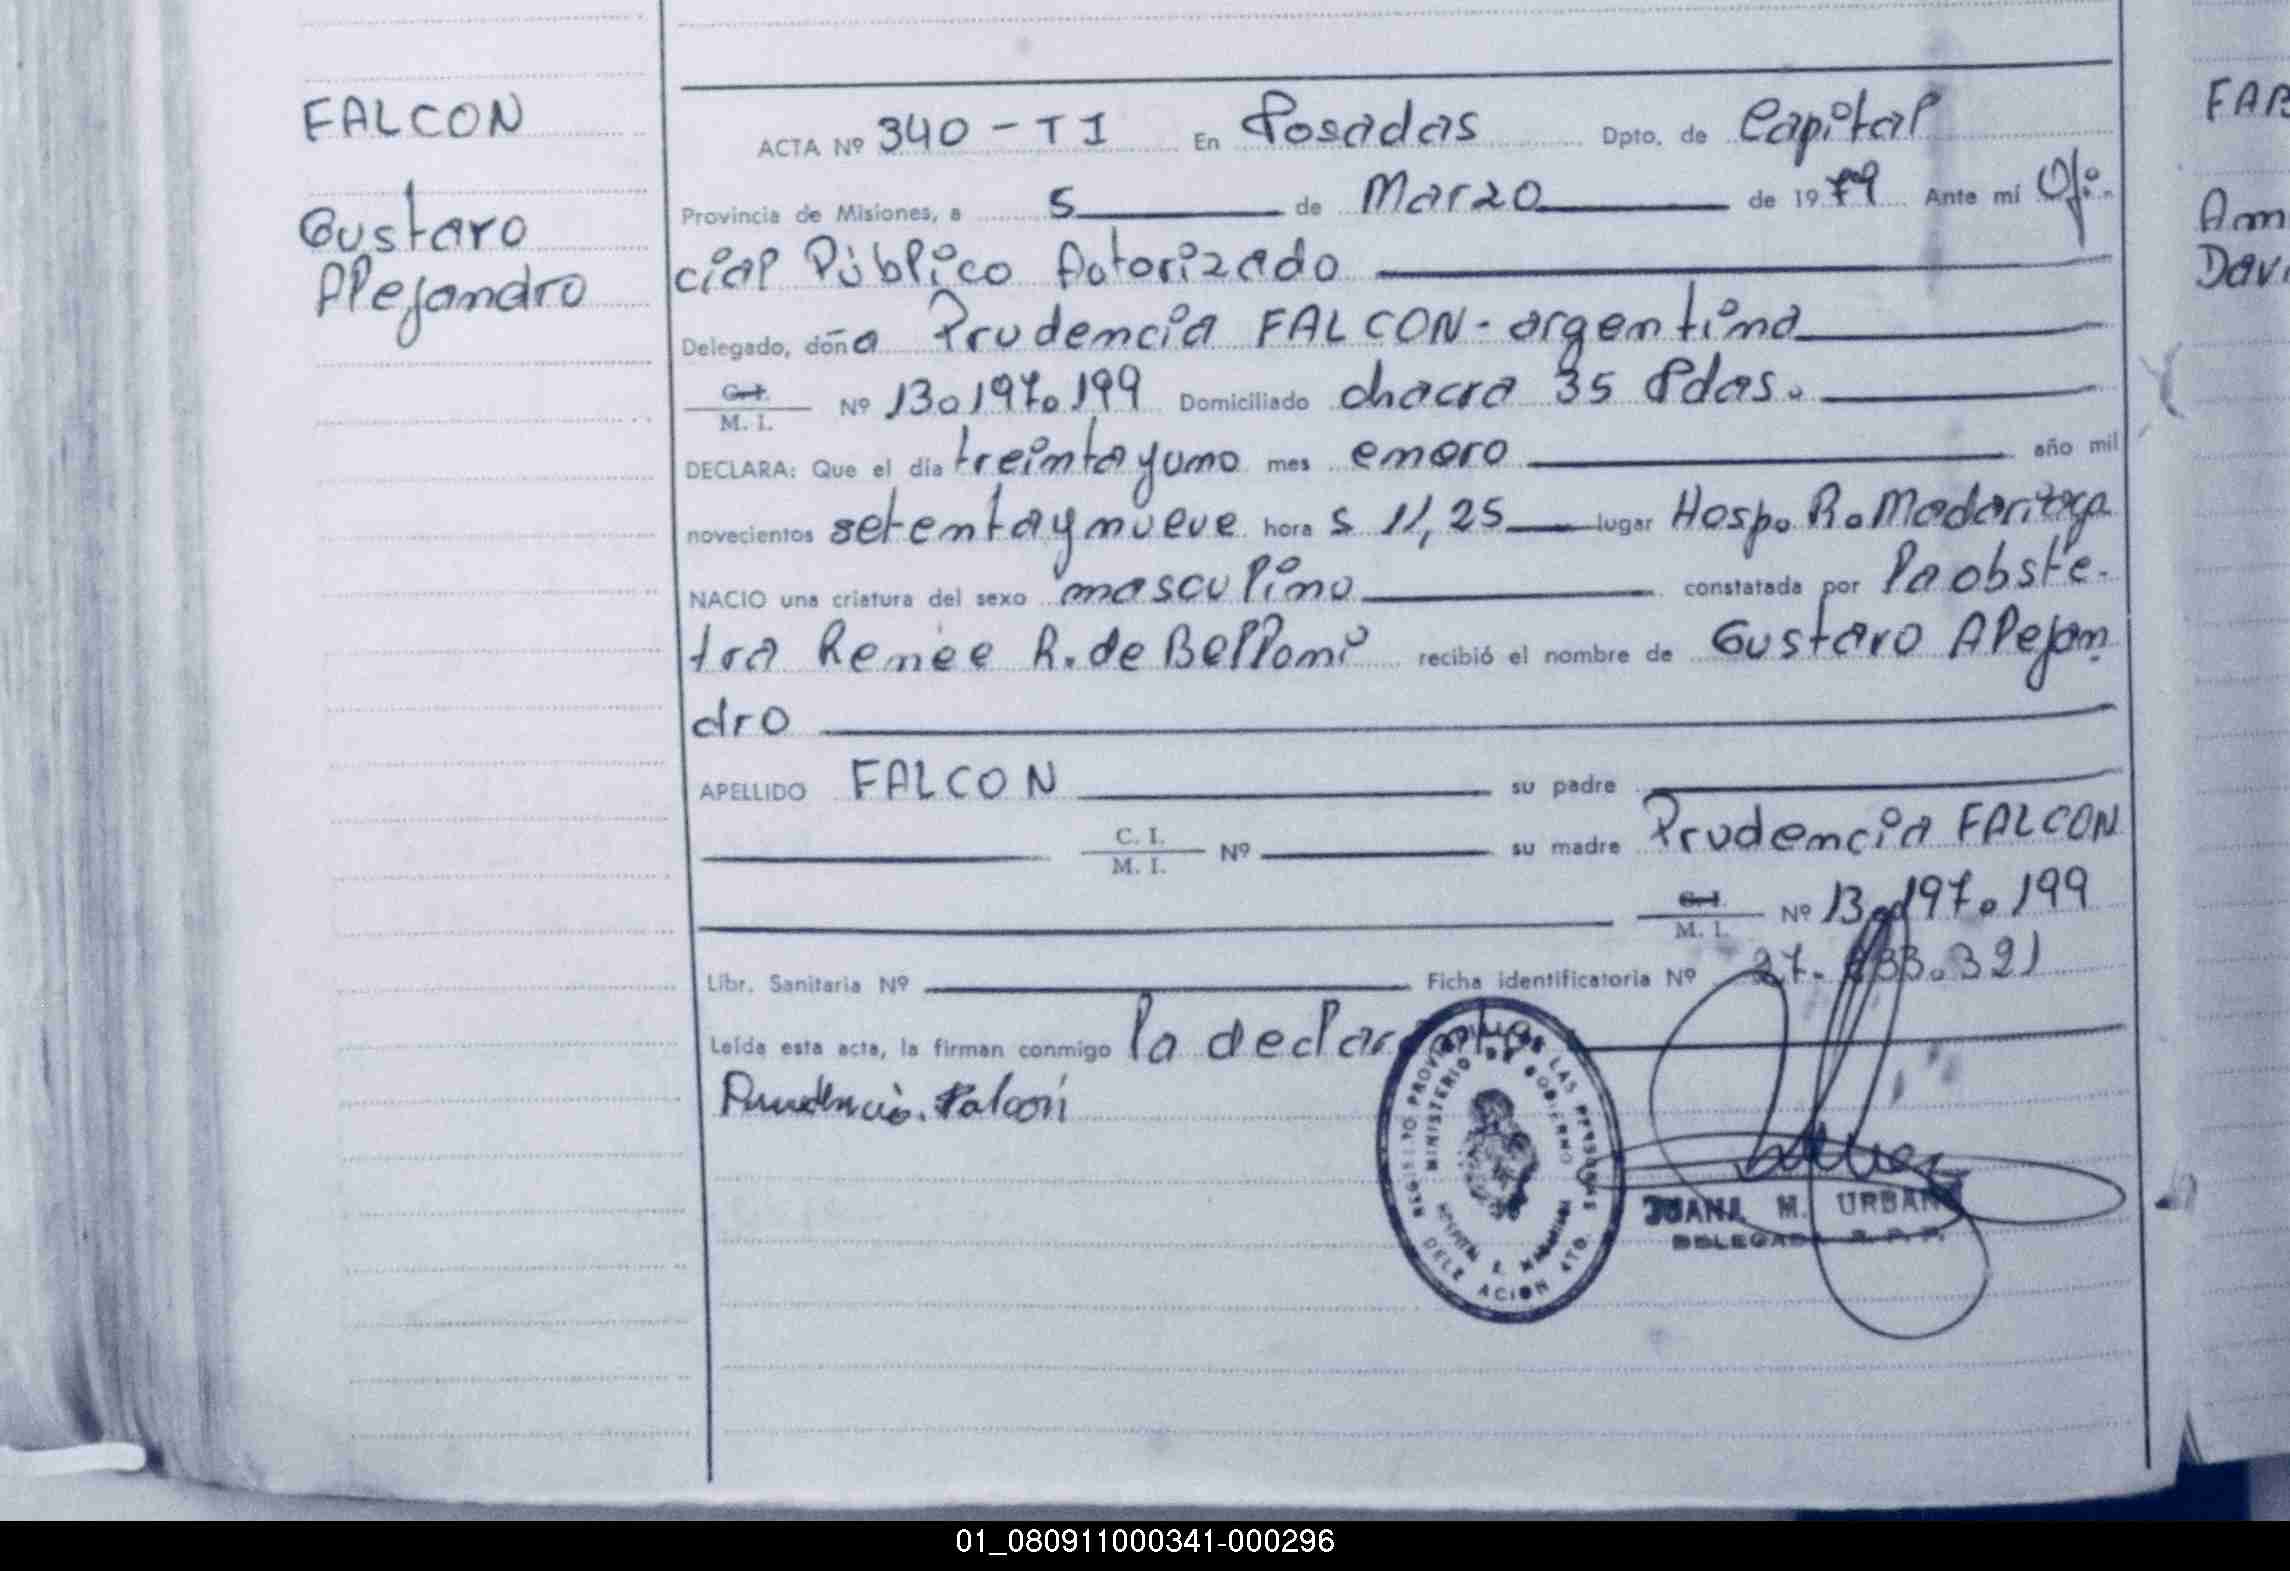 FALCON
Gustavo
Alejandro
ACTA Nº 340 - T I En Posadas Dpto. de Capital
Provincia de Misiones, a 5 de Marzo de 1979 Ante mí Ofi-
cial Público Autorizado
Delegado, doña Prudencia FALCON - argentina
C. I.
M. I. Nº 13.197.199 Domiciliado chacra 35 Pdas.
DECLARA: Que el día treinta y uno mes enero año mil
novecientos setenta y nueve hora s 11,25 lugar Hosp. R. Madariaga
NACIO una criatura del sexo masculino constatada por la obste-
tra Renée R. de Belloni recibió el nombre de Gustavo Alejan
dro
APELLIDO FALCON su padre
C. I.
M. I. Nº su madre Prudencia FALCON
C. I.
M. I. Nº 13.197.199
Libr. Sanitaria Nº Ficha identificatoria Nº 27. .321
Leída esta acta, la firman conmigo la declarante
Prudencia Falcón
REGISTRO PROVINCIAL DE LAS PERSONAS
MINISTERIO DE GOBIERNO
HOSPITAL R. MADARIAGA
DELEGACION 4TO.
JUANA M. URBAN
DELEGADA R. P. P.
FAB
Am
Davi
01_080911000341-000296